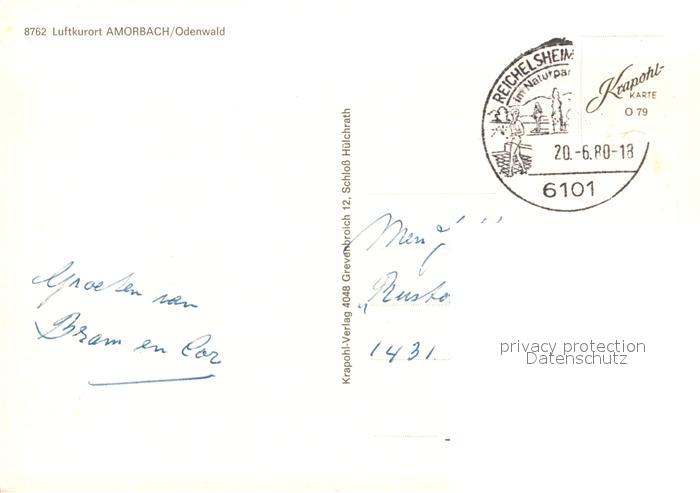 8762 Luftkurort AMORBACH/Odenwald
REICHELSHEIM
im Naturpar
20.-6.80-18
6101
Krapohl-
KARTE
O 79
Krapohl-Verlag 4048 Grevenbroich 12, Schloß Hülchrath
Groeten van
Bram en Cor
Men
"Rusto
1431
privacy protection
Datenschutz